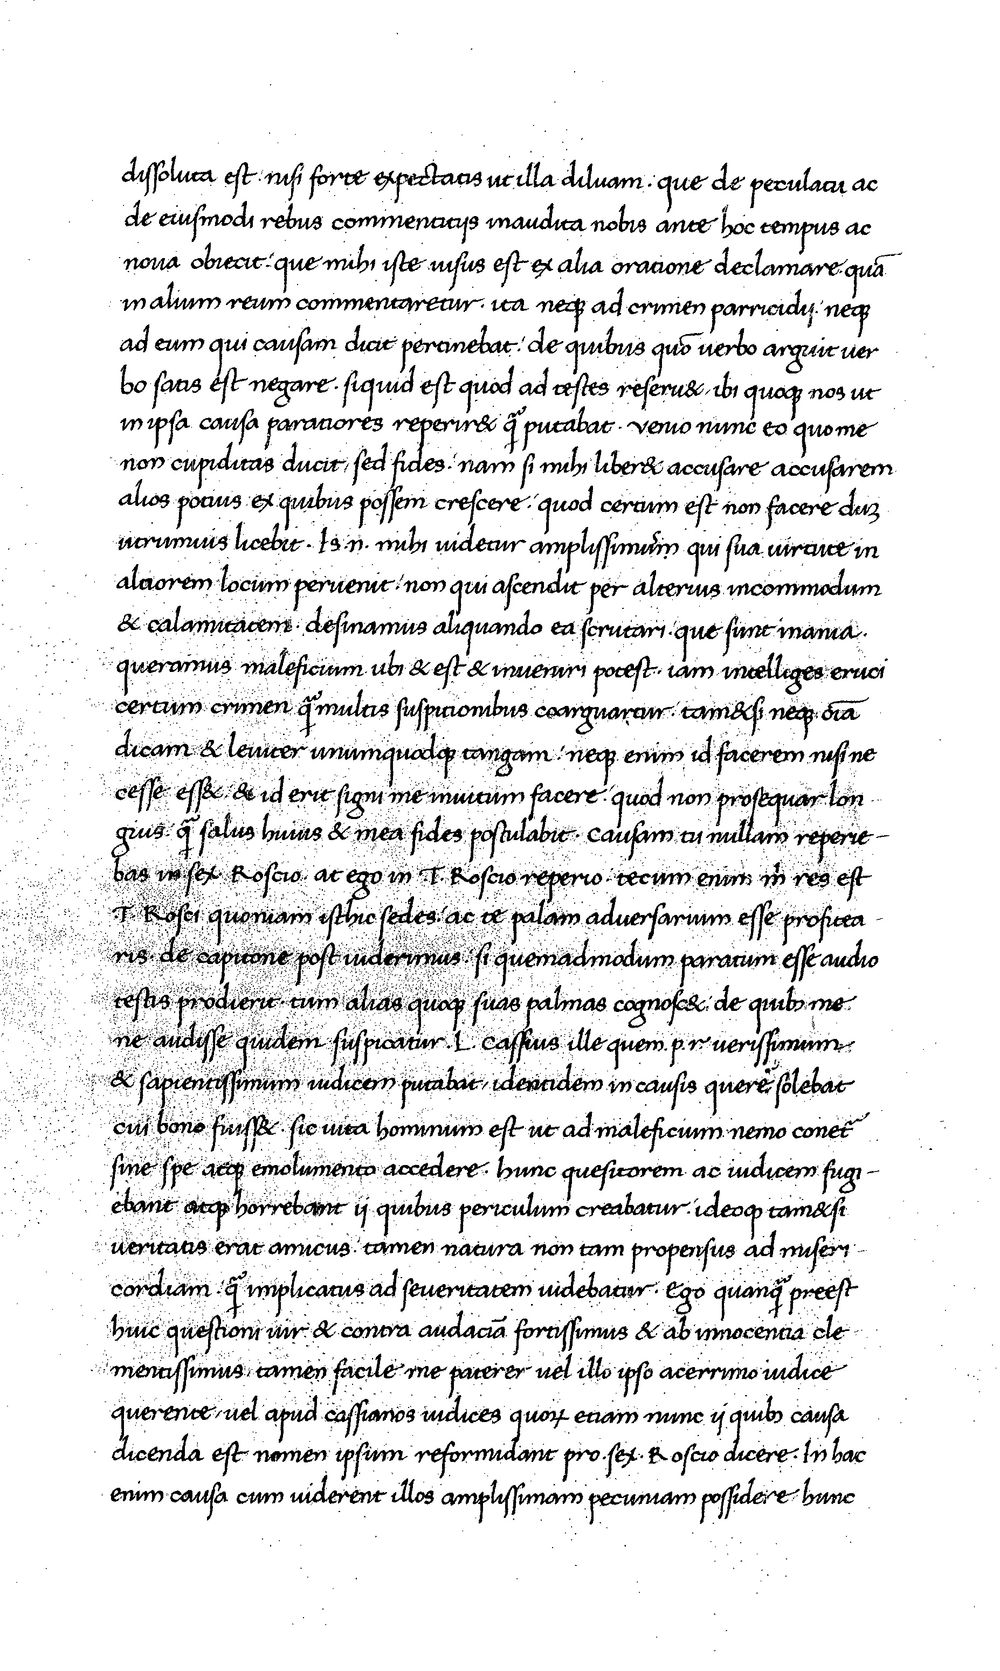 dissoluta est. nisi forte expectatis ut illa diluam. que de peculatu ac
de eiusmodi rebus commenticijs inaudita nobis ante hoc tempus ac
noua obiecit. que mihi iste uisus est ex alia oratione declamare quā
in alium reum commentaretur. ita neqȝ ad crimen parricidij neqȝ
ad eum qui causam dicit pertinebat. de quibus quō uerbo arguit uer
bo satis est negare. siquid est quod ad testes reseru&, ibi quoqȝ nos ut
in ipsa causa paratiores reperir& q̄ putabat. venio nunc eo quo me
non cupiditas ducit, sed fides. nam si mihi liber& accusare accusarem
alios potius ex quibus possem crescere. quod certum est non facere duȝ
utrumuis licebit. Is .n. mihi uidetur amplissimum qui sua uirtute in
altiorem locum peruenit. non qui ascendit per alterius incommodum
& calamitatem. desinamus aliquando ea scrutari. que sunt inania.
queramus maleficium ubi & est & inueniri potest. iam intelliges eruci
certum crimen q̄ multis suspitionibus coarguatur. tam&si neqȝ oīa
dicam & leuiter unumquodqȝ tangam. neqȝ enim id facerem nisi ne
cesse ess&. & id erit signi me inuitum facere. quod non prosequar lon
gius. q̄ salus huius & mea fides postulabit. causam tu nullam reperie-
bas in sex Roscio. at ego in T. Roscio reperio. tecum enim m̄ res est
T. Rosci quoniam isthic sedes. ac te palam aduersarium esse profitea-
ris. de capitone post uiderimus. si quemadmodum paratum esse audio
testis prodierit. tum alias quoqȝ suas palmas cognosc&. de quibȝ me
ne audisse quidem suspicatur. L. cassius ille quem .p.r. uerissimum
& sapientissimum iudicem putabat, identidem in causis querē solebat
cui bono fuiss&. sic uita hominum est ut ad maleficium nemo conet̄
sine spe atqȝ emolumento accedere. hunc quesitorem ac iudicem fugi-
ebant atqȝ horrebant ij quibus periculum creabatur. ideoqȝ tam&si
ueritatis erat amicus. tamen natura non tam propensus ad miseri-
cordiam. q̄ implicatus ad seueritatem uidebatur. Ego quanq̄ preest
huic questioni uir & contra audaciā fortissimus & ab innocentia cle-
mentissimus, tamen facile me paterer uel illo ipso acerrimo iudice
querente, uel apud cassianos iudices quoꝝ etiam nunc ij quibȝ causa
dicenda est nomen ipsum reformidant pro .sex. Roscio dicere. In hac
enim causa cum uiderent illos amplissimam pecuniam possidere hunc